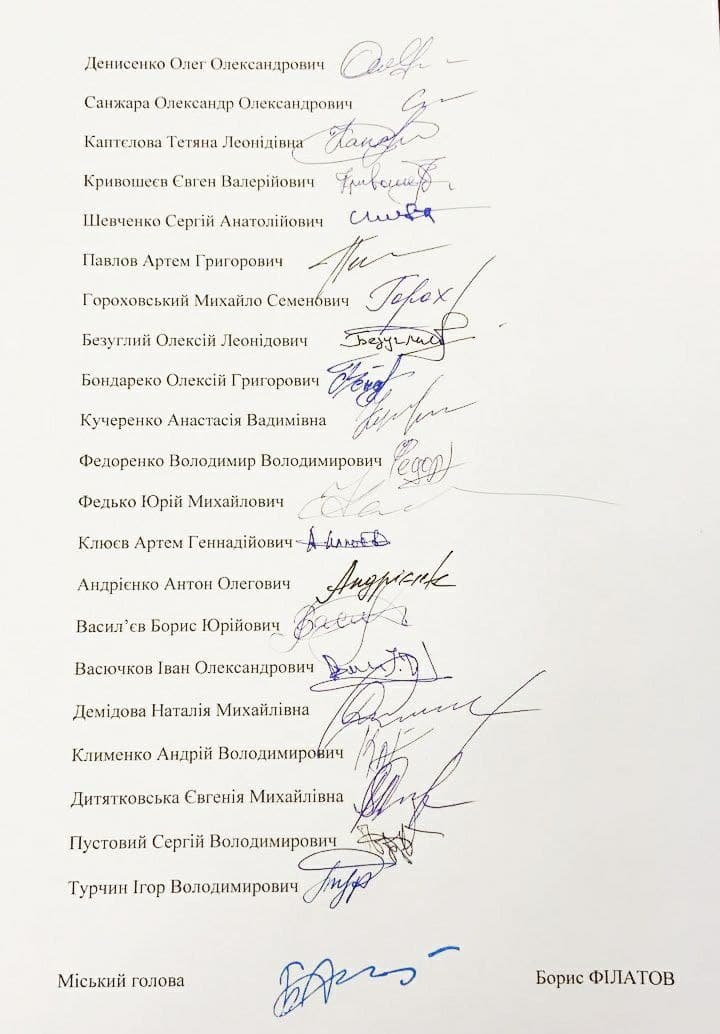 Денисенко Олег Олександрович
Санжара Олександр Олександрович
Каптєлова Тетяна Леонідівна
Кривошеєв Євген Валерійович
Шевченко Сергій Анатолійович
Павлов Артем Григорович
Гороховський Михайло Семенович Горох
Безуглий Олексій Леонідович Безуглий
Бондареко Олексій Григорович
Кучеренко Анастасія Вадимівна
Федоренко Володимир Володимирович Федор
Федько Юрій Михайлович
Клюєв Артем Геннадійович
Андрієнко Антон Олегович Андрієнк
Васил’єв Борис Юрійович
Васючков Іван Олександрович
Демідова Наталія Михайлівна
Клименко Андрій Володимирович
Дитятковська Євгенія Михайлівна
Пустовий Сергій Володимирович
Турчин Ігор Володимирович
Міський голова Борис ФІЛАТОВ